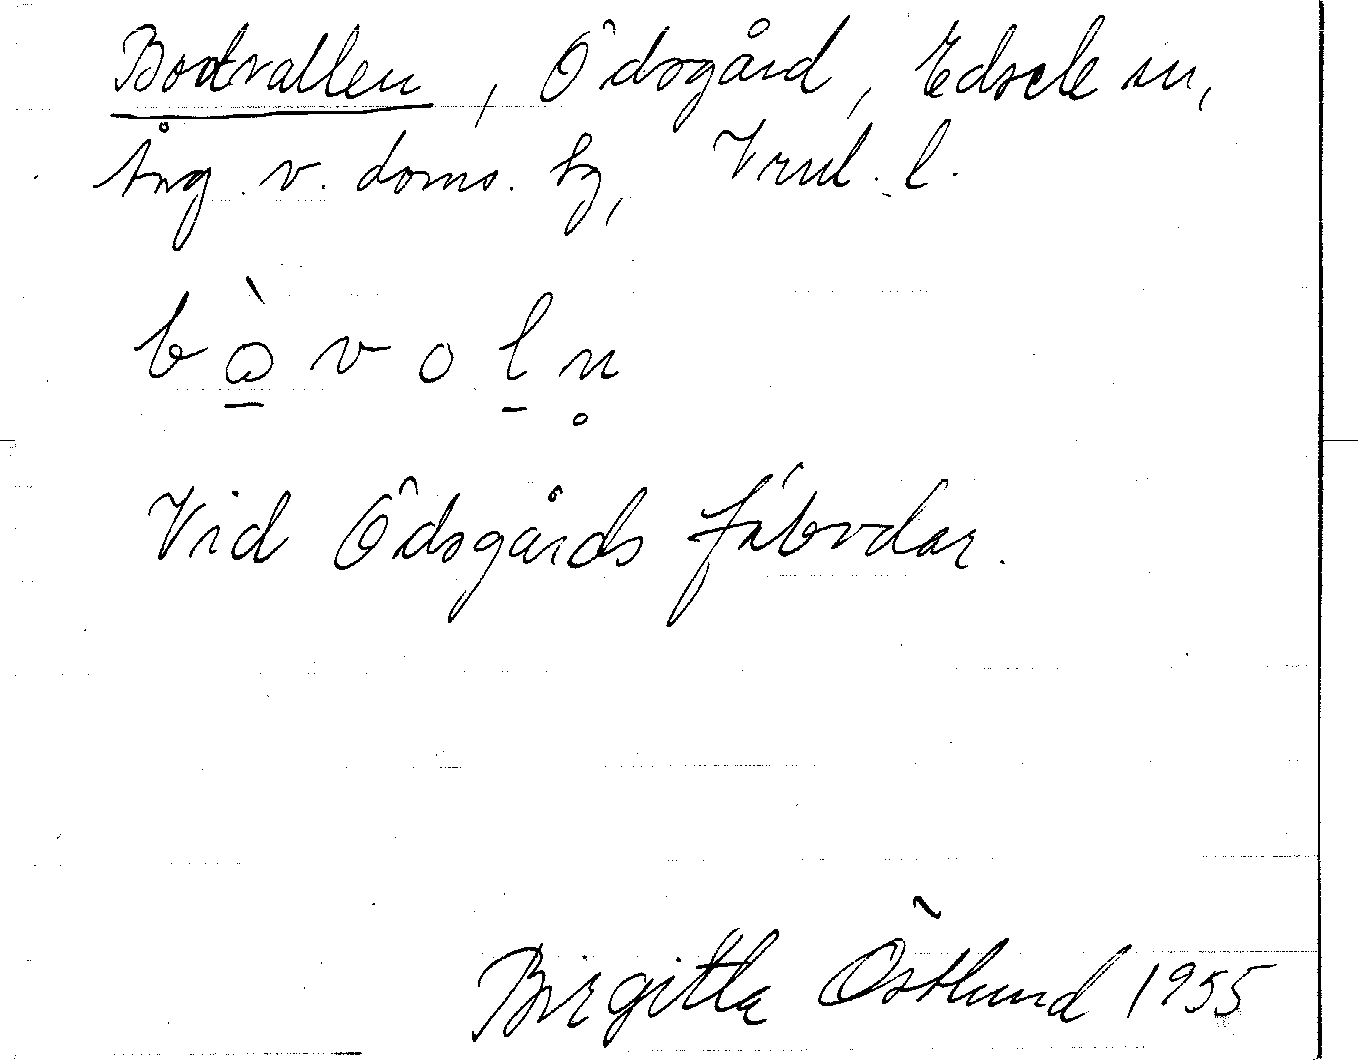 Bodvallen, Ödsgård, Edsele sn,
Ång. v. doms. tg, Vrnl. l.
bòvoln̥
Vid Ödsgårds fäbodar.
Birgitta Östlund 1955